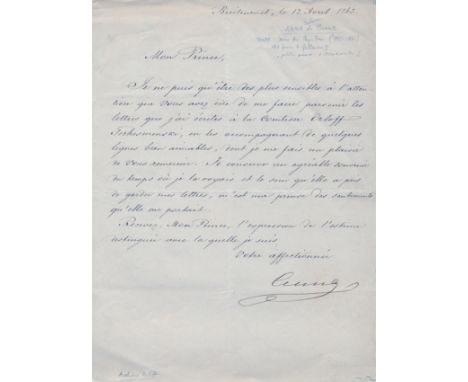 le 12 Avril 1863.
Mon Prince,
Je ne puis qu'être des plus sensibles à l'atten
tion que vous avez eue de me faire parvenir les
lettres que j'ai écrites à la Comtesse Orloff
en les accompagnant de quelques
lignes bien aimables, dont je me fais un plaisir
de vous remercier. Je conserve un agréable souvenir
du temps où je la voyais et le soin qu'elle a pris
de garder mes lettres, m'est une preuve des sentiments
qu'elle me portait.
Recevez, Mon Prince, l'expression de l'estime
distinguée avec la quelle je suis
Votre affectionnée
Anne